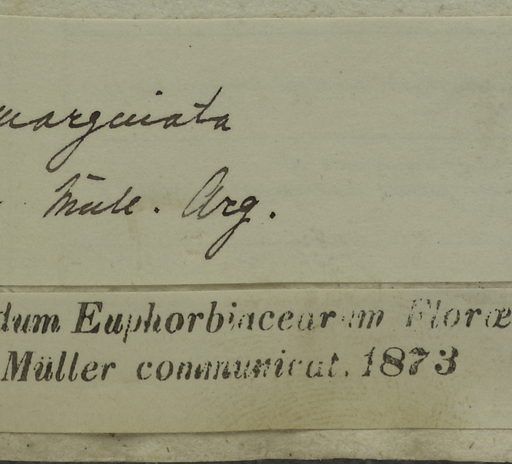 marginata
Müll. Arg.
dum Euphorbiacearum Floræ
Müller communicat. 1873